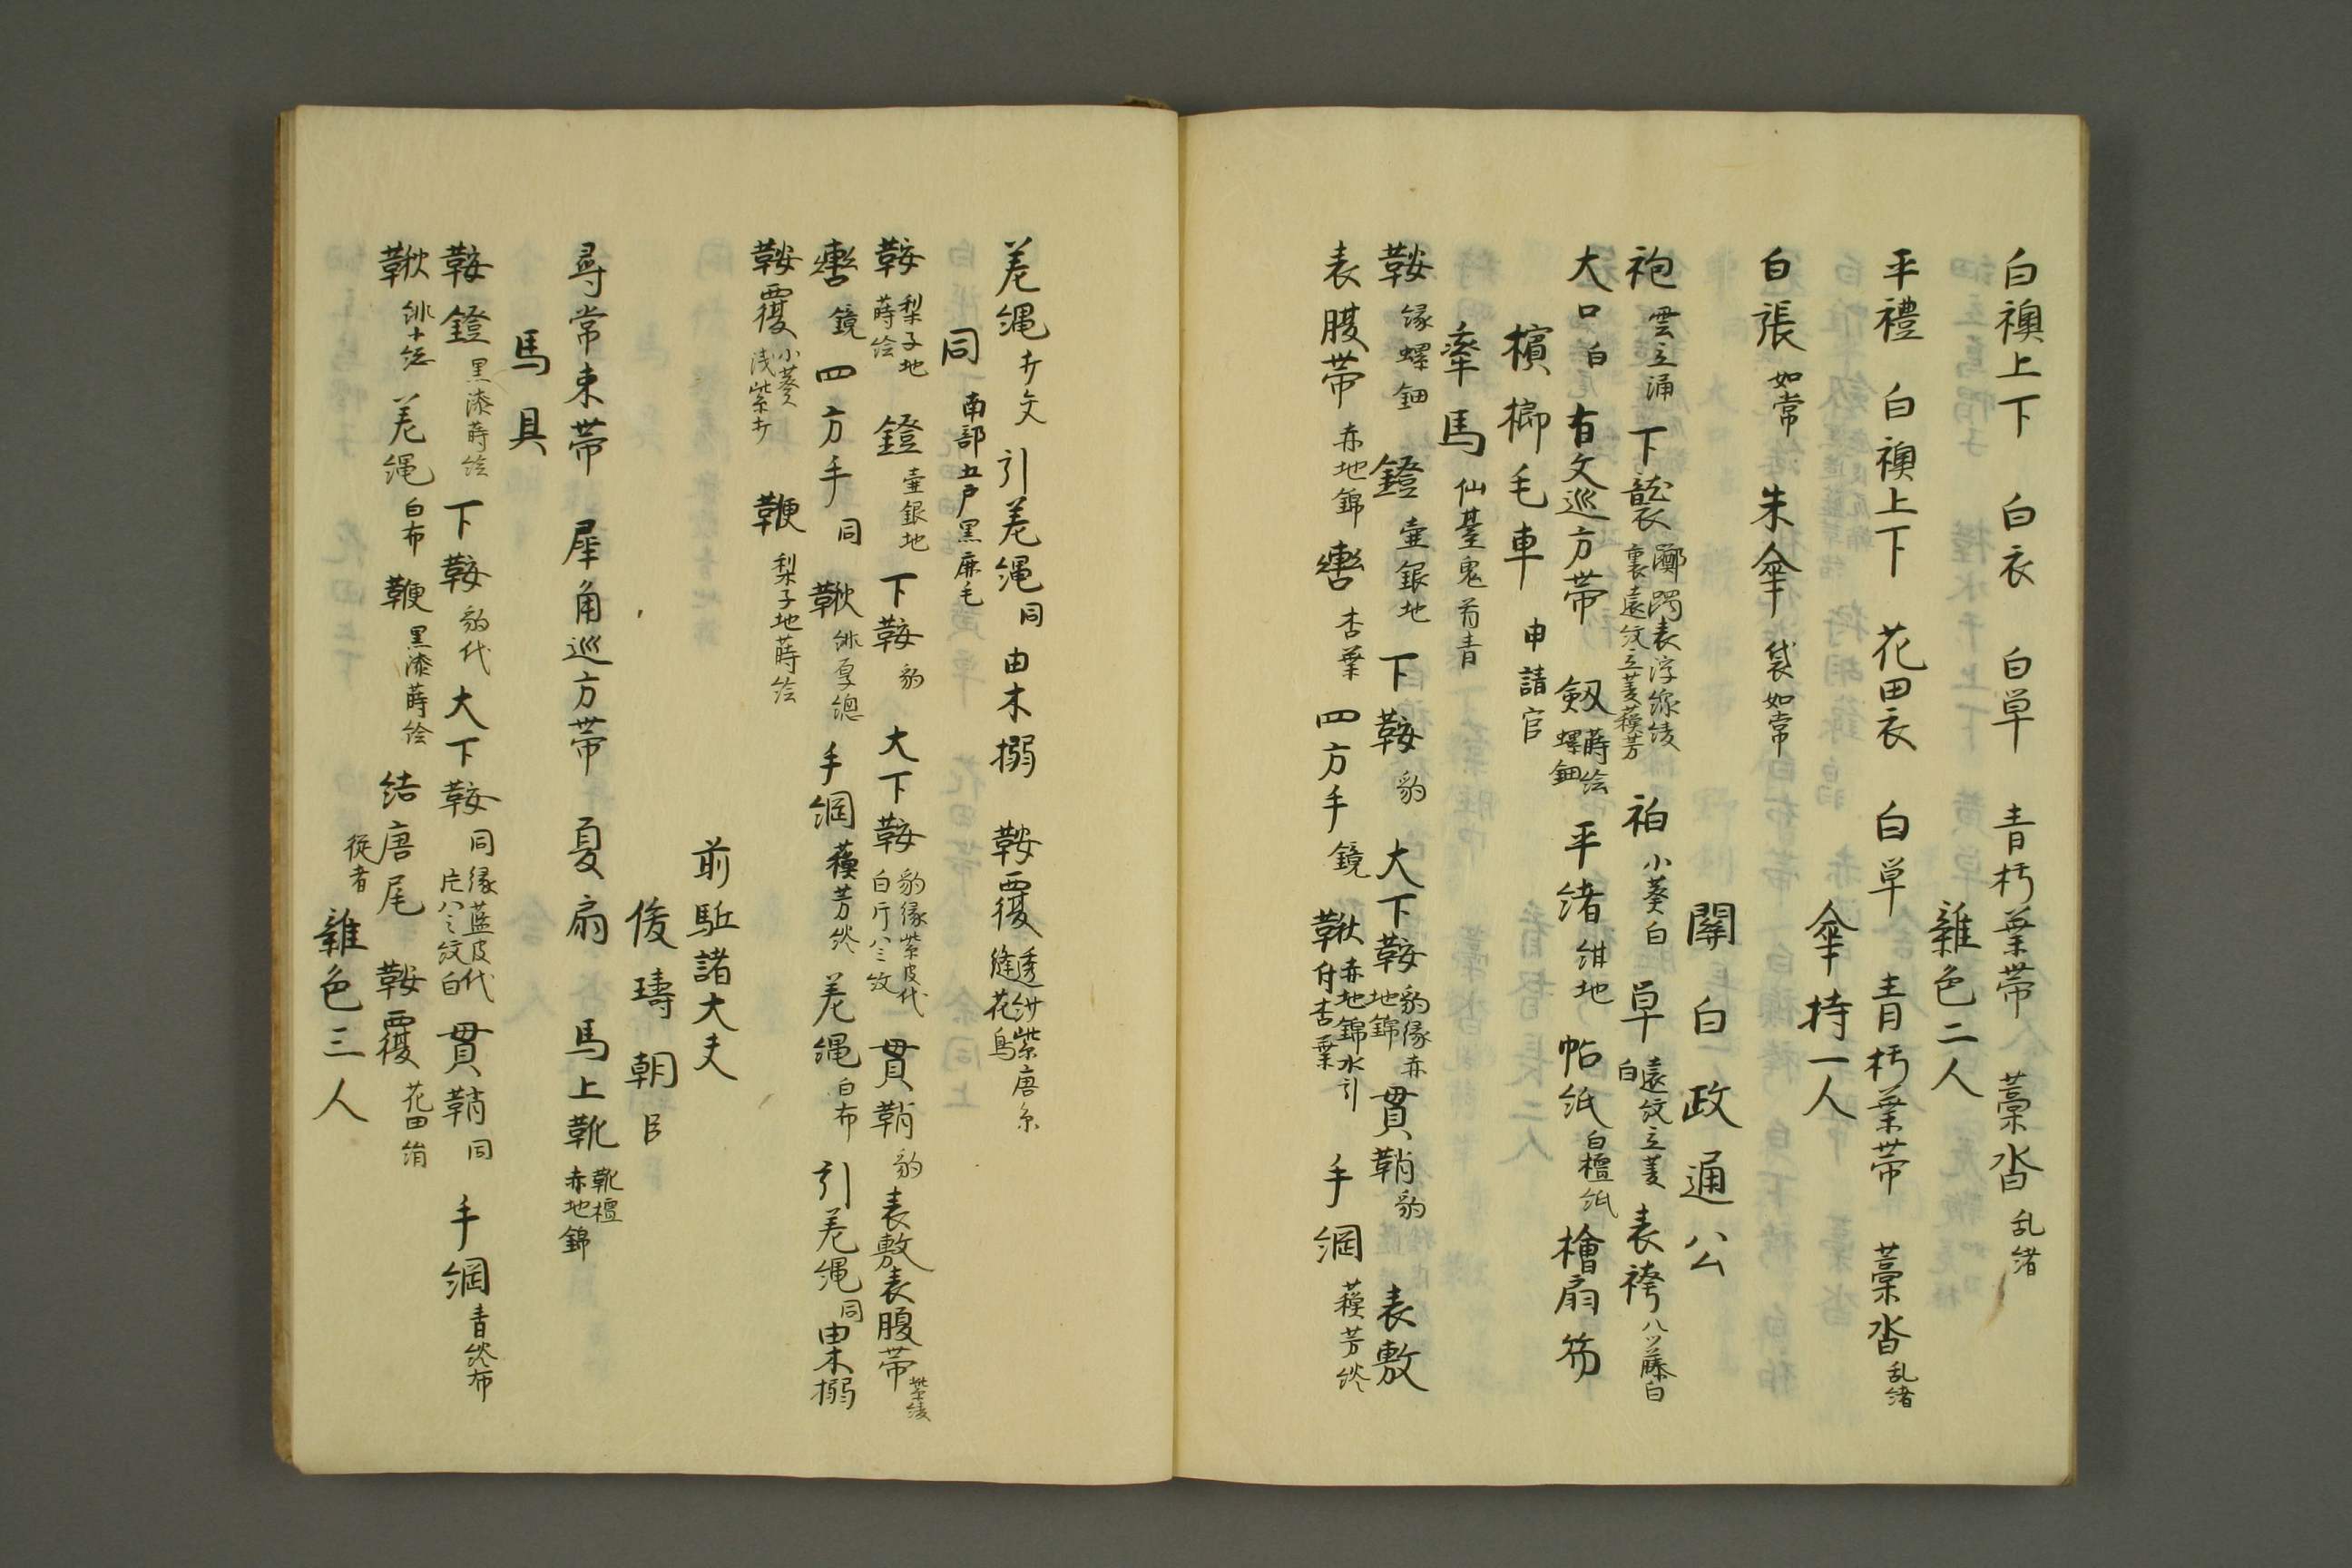 白襖上下 白衣 白単 青朽葉帯 藁沓 乱緒
雑色二人
平禮 白襖上下 花田衣 白単 青朽葉帯 藁沓 乱緒
傘持一人
白張 如常 朱傘 袋如常
關白政通公
袍 雲立涌 下襲 躑躅表浮線綾 裏遠紋立菱蘓芳 衵 小葵白 単 遠紋立菱 白 表袴 八ツ藤白
大口 白 有文巡方帯 剱 蒔絵 螺鈿 平緒 紺地 帖紙 白檀紙 檜扇 笏
檳榔毛車 申請官
牽馬 仙基鬼首青
鞍 縁螺鈿 鐙 壷銀地 下鞍 豹 大下鞍 豹縁赤 地錦 貫鞘 豹 表敷
表腹帯 赤地錦 轡 杏葉 四方手 鏡 鞦 赤地錦水引 付杏葉 手綱 蘓芳
差縄 文 引差縄 同 由木搦 鞍覆 透紗紫唐糸 縫花鳥
同 南部五戸黒鹿毛
鞍 梨子地 蒔絵 鐙 壷銀地 下鞍 豹 大下鞍 豹縁紫皮代 白片八ミ紋 貫鞘 豹 表敷表腹帯 紫綾
轡 鏡 四方手 同 鞦 緋厚總 手綱 蘓芳 差縄 白布 引差縄 同 由木搦
鞍覆 小葵 浅紫 鞭 梨子地蒔絵
前駈諸大夫
俊璹朝臣
尋常束帯 犀角巡方帯 夏扇 馬上靴 靴檀 赤地錦
馬具
鞍鐙 黒漆蒔絵 下鞍 豹代 大下鞍 同縁藍皮代 片八ミ紋白 貫鞘 同 手綱 青 布
鞦 緋 差縄 白布 鞭 黒漆蒔絵 結唐尾 鞍覆 花田絹
従者
雑色三人